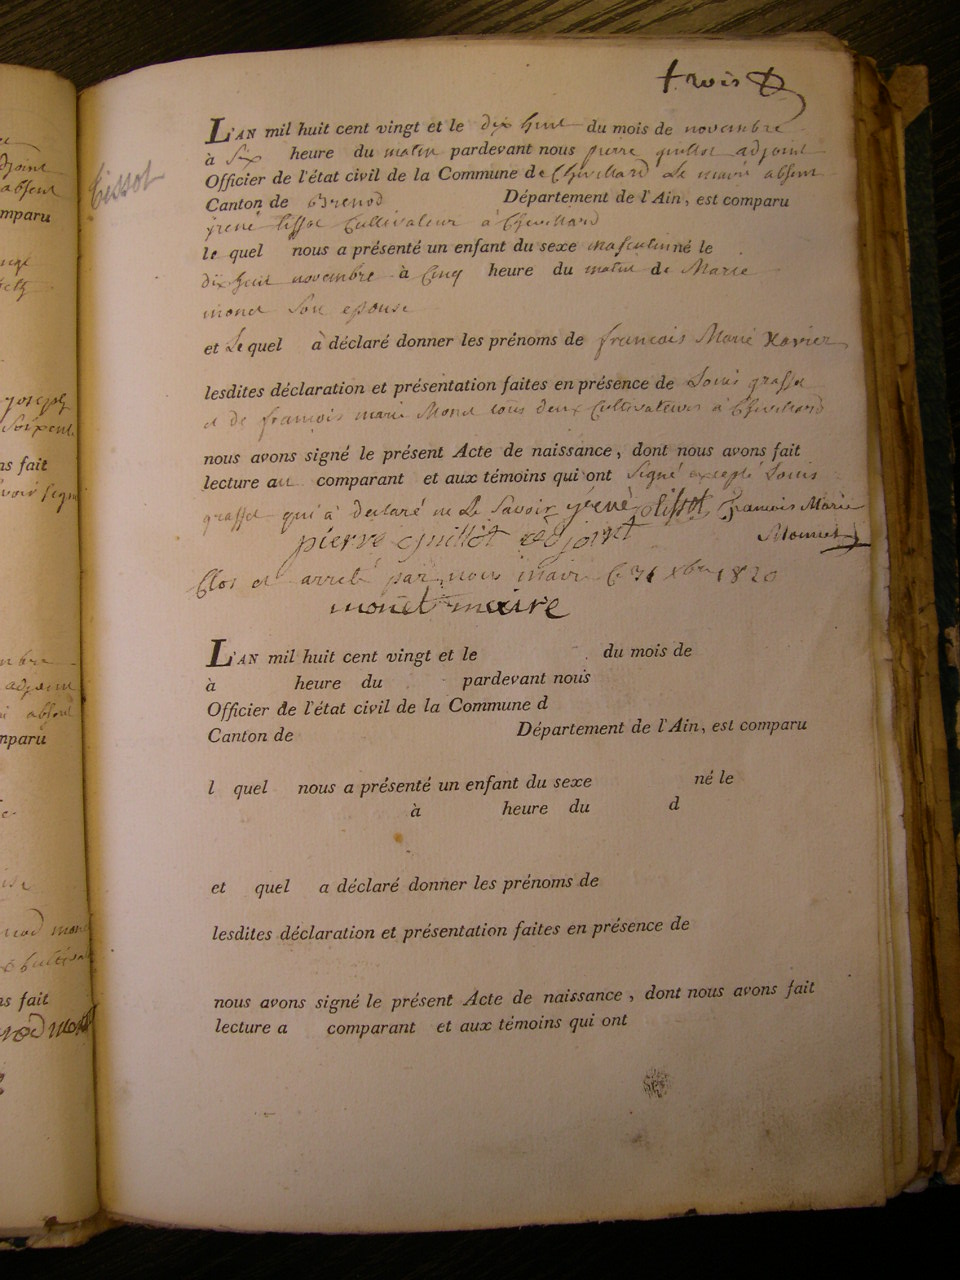 trois
L'AN mil huit cent vingt et le dix huit du mois de novembre
à six heure du matin pardevant nous pierre guillot adjoint
Officier de l'état civil de la Commune de Chevillard le maire absent
Tissot
Canton de Brenod Département de l'Ain, est comparu
tissot Cultivateur à Chevillard
le quel nous a présenté un enfant du sexe masculin né le
dix huit novembre à Cinq heure du matin de Marie
monet son epouse
et Le quel à déclaré donner les prénoms de francois Marie Xavier
lesdites déclaration et présentation faites en présence de Louis grasset
et de francois marie Monet tous deux Cultivateurs à Chevillard
nous avons signé le présent Acte de naissance, dont nous avons fait
lecture au comparant et aux témoins qui ont signé excepté Louis
grasset qui à declaré ne Le Savoir tissot francois Marie
pierre guillot adjoint Monnet
Clos et arreté par nous maire le 31 Xbre 1820
monet maire
L'AN mil huit cent vingt et le du mois de
à heure du pardevant nous
Officier de l'état civil de la Commune d
Canton de Département de l'Ain, est comparu
l quel nous a présenté un enfant du sexe né le
à heure du d
et quel a déclaré donner les prénoms de
lesdites déclaration et présentation faites en présence de
nous avons signé le présent Acte de naissance, dont nous avons fait
lecture a comparant et aux témoins qui ont